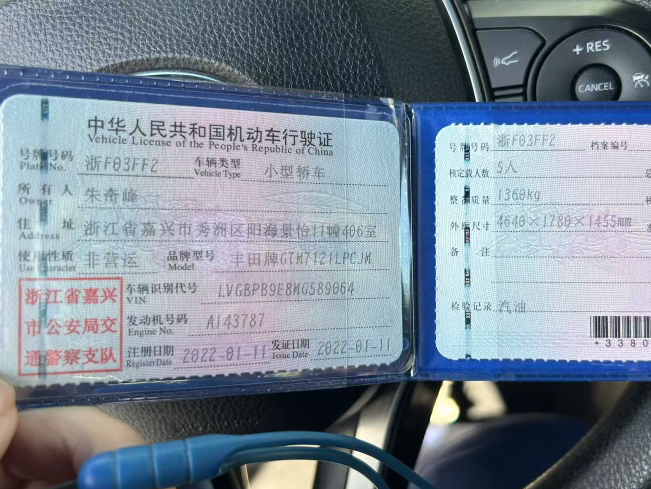 + RES
CANCEL
中华人民共和国机动车行驶证
Vehicle License of the People's Republic of China
号牌号码 浙F03FF2 车辆类型 小型轿车
Plate No. Vehicle Type
所有人 朱奇峰
Owner
住址 浙江省嘉兴市秀洲区阳海景怡11幢406室
Address
使用性质 非营运 品牌型号 丰田牌GTM7121LPCJM
Use Character Model
浙江省嘉兴
市公安局交
通警察支队
车辆识别代号 LVGBPB9E8MG589064
VIN
发动机号码 A143787
Engine No.
注册日期 2022-01-11 发证日期 2022-01-11
Register Date Issue Date
号牌号码 浙F03FF2 档案编号
核定载人数 5人
整备质量 1360kg
外廓尺寸 4640×1780×1455mm
备注
检验记录 汽油
*3380